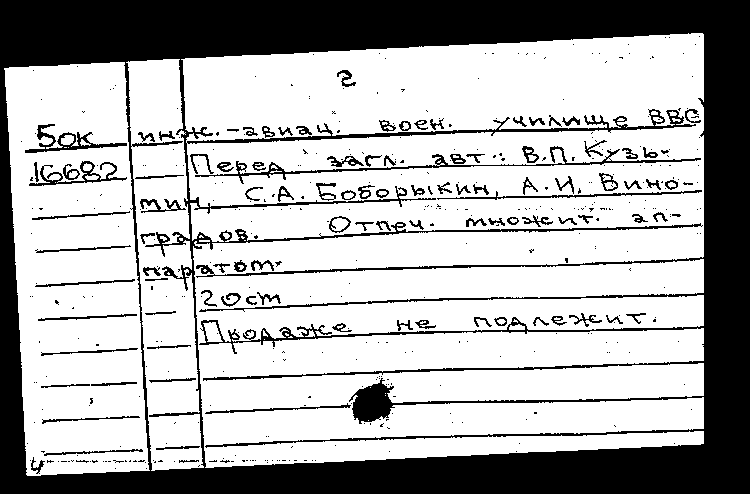 2
Бок инж.-авиац. воен. училище ВВС)
16682 Перед загл. авт.: В.П. Кузь-
мин, С.А. Боборыкин, А.И. Вино-
градов. Отпеч. множит. ап-
паратом.
20cm
Продаже не подлежит.